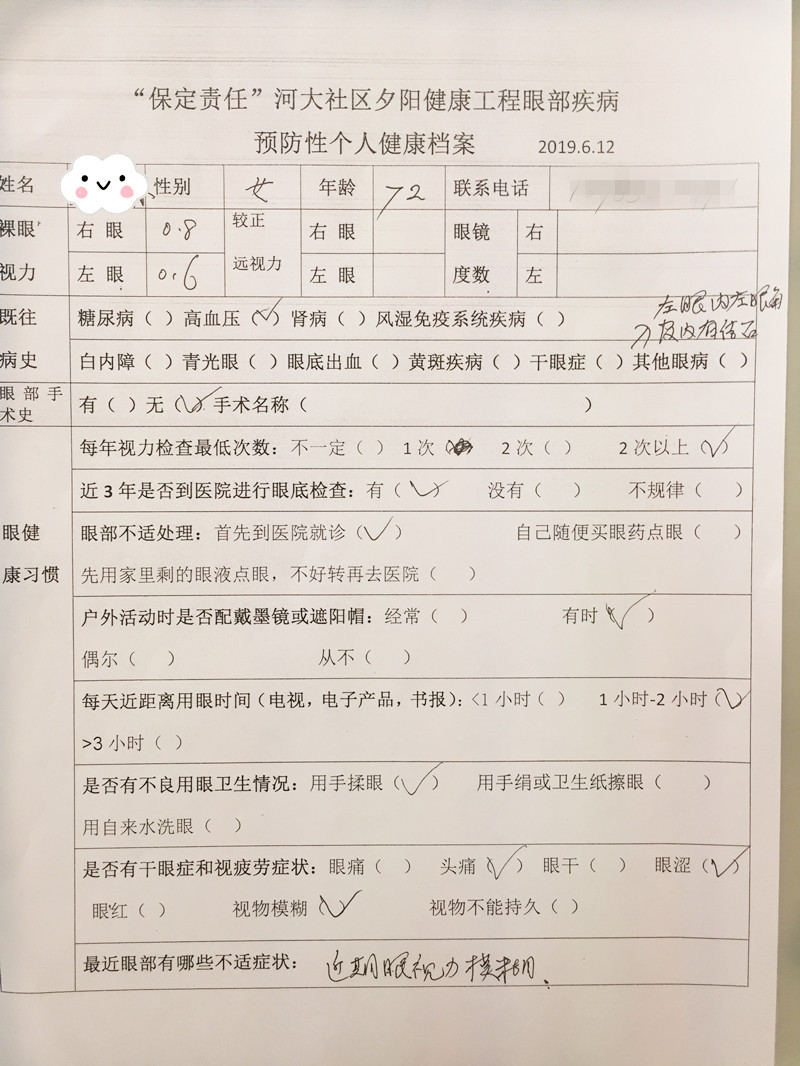 “保定责任”河大社区夕阳健康工程眼部疾病
预防性个人健康档案 2019.6.12
姓名 性别 女 年龄 72 联系电话
裸眼 右 眼 0.8 较正 右 眼 眼镜 右
视力 左 眼 0.6 远视力 左 眼 度数 左
左眼内左眼角
皮内有结石
既往 糖尿病（ ）高血压（√）肾病（ ）风湿免疫系统疾病（ ）
病史 白内障（ ）青光眼（ ）眼底出血（ ）黄斑疾病（ ）干眼症（ ）其他眼病（ ）
眼 部 手
术史 有（ ）无（√）手术名称（ ）
每年视力检查最低次数：不一定（ ） 1 次（ 2 次（ ） 2 次以上（√）
近 3 年是否到医院进行眼底检查：有（√） 没有（ ） 不规律（ ）
眼健 眼部不适处理：首先到医院就诊（√） 自己随便买眼药点眼（ ）
康习惯 先用家里剩的眼液点眼，不好转再去医院（ ）
户外活动时是否配戴墨镜或遮阳帽：经常（ ） 有时（√）
偶尔（ ） 从不（ ）
每天近距离用眼时间（电视，电子产品，书报）：<1 小时（ ） 1 小时-2 小时（√）
>3 小时（ ）
是否有不良用眼卫生情况：用手揉眼（√） 用手绢或卫生纸擦眼（ ）
用自来水洗眼（ ）
是否有干眼症和视疲劳症状：眼痛（ ） 头痛（√） 眼干（ ） 眼涩（√）
眼红（ ） 视物模糊（√） 视物不能持久（ ）
最近眼部有哪些不适症状： 近期眼视力模糊.